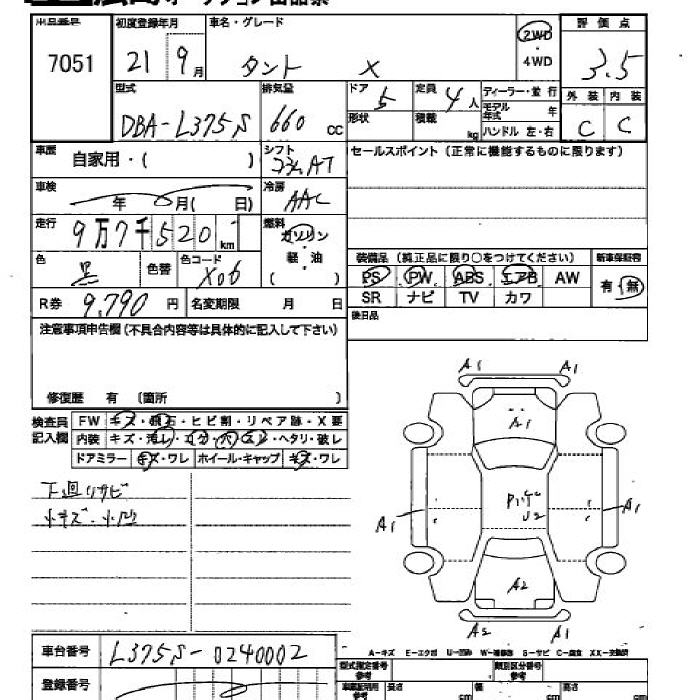 出品番号 初度登録年月 車名・グレード 2WD 評価点
7051 21 9月 タント X ・4WD 3.5
型式 排気量 ドア 5 定員 4人 ディーラー・並行 外装 内装
DBA-L375S 660cc 形状 積載 kg モデル年式 年 C C
ハンドル 左・右
車歴 自家用・( ) シフト コラムAT セールスポイント(正常に機能するものに限ります)
車検 年 月( 日) 冷房 AAC
走行 9万7千520km 燃料 ガソリン
軽・油
( )
色 黒 色替 色コード X06 装備品(純正品に限り○をつけてください) 新車保証書
PS PW ABS エアB AW 有・無
SR ナビ TV カワ
R券 9,790円 名変期限 月 日 後日品
注意事項申告欄(不具合内容等は具体的に記入して下さい)
修復歴 有 〔箇所 〕
検査員記入欄 FW キズ・飛石・ヒビ割・リペア跡・X要
内装 キズ・汚レ・コゲ・穴・スレ・ヘタリ・破レ
ドアミラー キズ・ワレ ホイール・キャップ キズ・ワレ
下廻りサビ
小キズ・小凹
A1 A1
A1
A1 A1
U2
A2
A2 A1
A-キズ E-エクボ U-凹み W-補修跡 S-サビ C-腐食 XX-交換済
車台番号 L375S-0240002
型式指定番号 参考 類別区分番号 参考
登録番号 長さ cm 幅 cm 高 cm